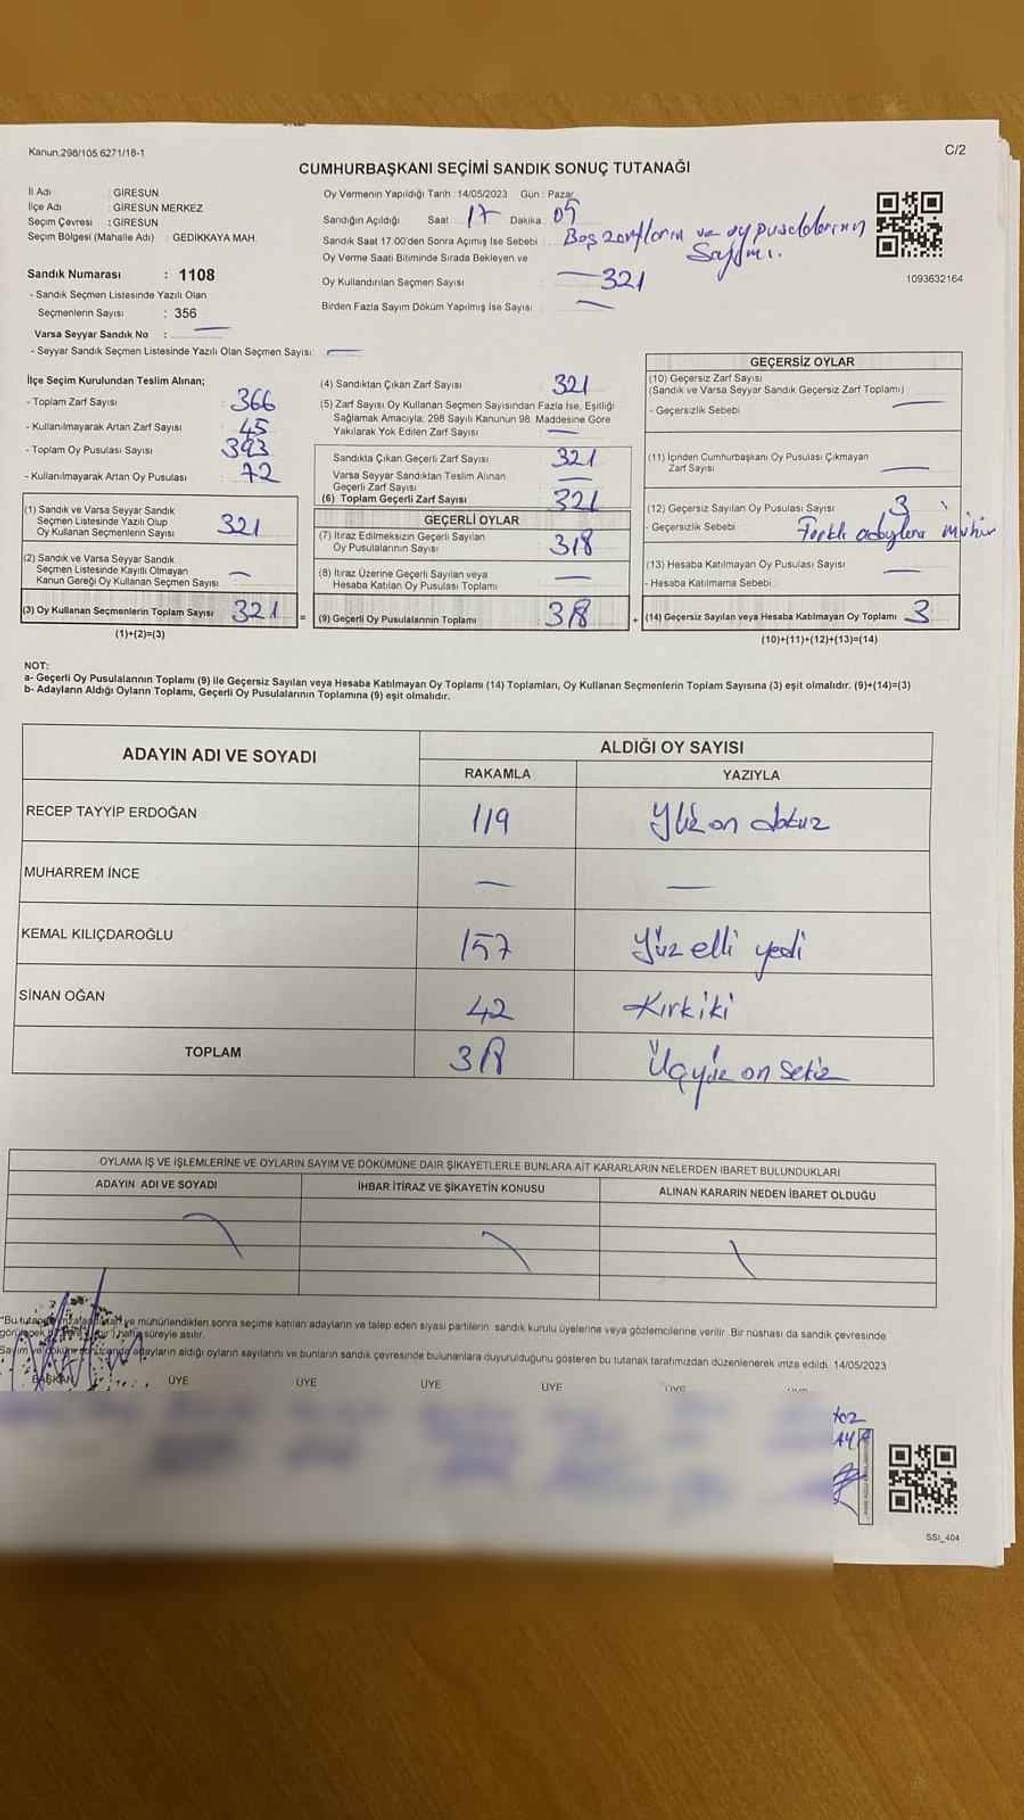 Kanun:298/105 6271/18-1
C/2
CUMHURBAŞKANI SEÇİMİ SANDIK SONUÇ TUTANAĞI
İl Adı : GİRESUN
İlçe Adı : GİRESUN MERKEZ
Seçim Çevresi : GİRESUN
Seçim Bölgesi (Mahalle Adı) : GEDİKKAYA MAH.
Sandık Numarası : 1108
- Sandık Seçmen Listesinde Yazılı Olan
Seçmenlerin Sayısı : 356
Varsa Seyyar Sandık No : —
- Seyyar Sandık Seçmen Listesinde Yazılı Olan Seçmen Sayısı: —
Oy Vermenin Yapıldığı Tarih :14/05/2023 Gün : Pazar
Sandığın Açıldığı Saat 17 Dakika 05
Sandık Saat 17:00'den Sonra Açımış İse Sebebi Boş zarfların ve oy pusulalarının
Sayımı.
Oy Verme Saati Bitiminde Sırada Bekleyen ve
Oy Kullandırılan Seçmen Sayısı —321
Birden Fazla Sayım Döküm Yapılmış İse Sayısı —
1093632164
İlçe Seçim Kurulundan Teslim Alınan;
- Toplam Zarf Sayısı : 366
- Kullanılmayarak Artan Zarf Sayısı : 45
- Toplam Oy Pusulası Sayısı : 393
- Kullanılmayarak Artan Oy Pusulası : 72
(1) Sandık ve Varsa Seyyar Sandık
Seçmen Listesinde Yazılı Olup
Oy Kullanan Seçmenlerin Sayısı 321
(2) Sandık ve Varsa Seyyar Sandık
Seçmen Listesinde Kayıtlı Olmayan
Kanun Gereği Oy Kullanan Seçmen Sayısı —
(3) Oy Kullanan Seçmenlerin Toplam Sayısı 321 =
(1)+(2)=(3)
(4) Sandıktan Çıkan Zarf Sayısı 321
(5) Zarf Sayısı Oy Kullanan Seçmen Sayısından Fazla İse, Eşitliği
Sağlamak Amacıyla, 298 Sayılı Kanunun 98. Maddesine Göre
Yakılarak Yok Edilen Zarf Sayısı —
Sandıkta Çıkan Geçerli Zarf Sayısı 321
Varsa Seyyar Sandıktan Teslim Alınan
Geçerli Zarf Sayısı —
(6) Toplam Geçerli Zarf Sayısı 321
GEÇERLİ OYLAR
(7) İtiraz Edilmeksizin Geçerli Sayılan
Oy Pusulalarının Sayısı 318
(8) İtiraz Üzerine Geçerli Sayılan veya
Hesaba Katılan Oy Pusulası Toplamı —
(9) Geçerli Oy Pusulalarının Toplamı 318 +
GEÇERSİZ OYLAR
(10) Geçersiz Zarf Sayısı
(Sandık ve Varsa Seyyar Sandık Geçersiz Zarf Toplamı) —
- Geçersizlik Sebebi
(11) İçinden Cumhurbaşkanı Oy Pusulası Çıkmayan
Zarf Sayısı —
(12) Geçersiz Sayılan Oy Pusulası Sayısı 3
- Geçersizlik Sebebi Farklı adaylara mühür
(13) Hesaba Katılmayan Oy Pusulası Sayısı —
- Hesaba Katılmama Sebebi
(14) Geçersiz Sayılan veya Hesaba Katılmayan Oy Toplamı 3
(10)+(11)+(12)+(13)=(14)
NOT:
a- Geçerli Oy Pusulalarının Toplamı (9) ile Geçersiz Sayılan veya Hesaba Katılmayan Oy Toplamı (14) Toplamları, Oy Kullanan Seçmenlerin Toplam Sayısına (3) eşit olmalıdır. (9)+(14)=(3)
b- Adayların Aldığı Oyların Toplamı, Geçerli Oy Pusulalarının Toplamına (9) eşit olmalıdır.
ADAYIN ADI VE SOYADI
ALDIĞI OY SAYISI
RAKAMLA YAZIYLA
RECEP TAYYİP ERDOĞAN 119 Yüz on dokuz
MUHARREM İNCE — —
KEMAL KILIÇDAROĞLU 157 Yüz elli yedi
SİNAN OĞAN 42 Kırkiki
TOPLAM 318 Üçyüz on sekiz
OYLAMA İŞ VE İŞLEMLERİNE VE OYLARIN SAYIM VE DÖKÜMÜNE DAİR ŞİKAYETLERLE BUNLARA AİT KARARLARIN NELERDEN İBARET BULUNDUKLARI
ADAYIN ADI VE SOYADI İHBAR İTİRAZ VE ŞİKAYETİN KONUSU ALINAN KARARIN NEDEN İBARET OLDUĞU
ve mühürlendikten sonra seçime katılan adayların ve talep eden siyasi partilerin, sandık kurulu üyelerine veya gözlemcilerine verilir. Bir nüshası da sandık çevresinde
hafta süreyle asılır.
adayların aldığı oyların sayılarını ve bunların sandık çevresinde bulunanlara duyurulduğunu gösteren bu tutanak tarafımızdan düzenlenerek imza edildi. 14/05/2023
BAŞKAN ÜYE ÜYE ÜYE ÜYE ÜYE
SSİ_404